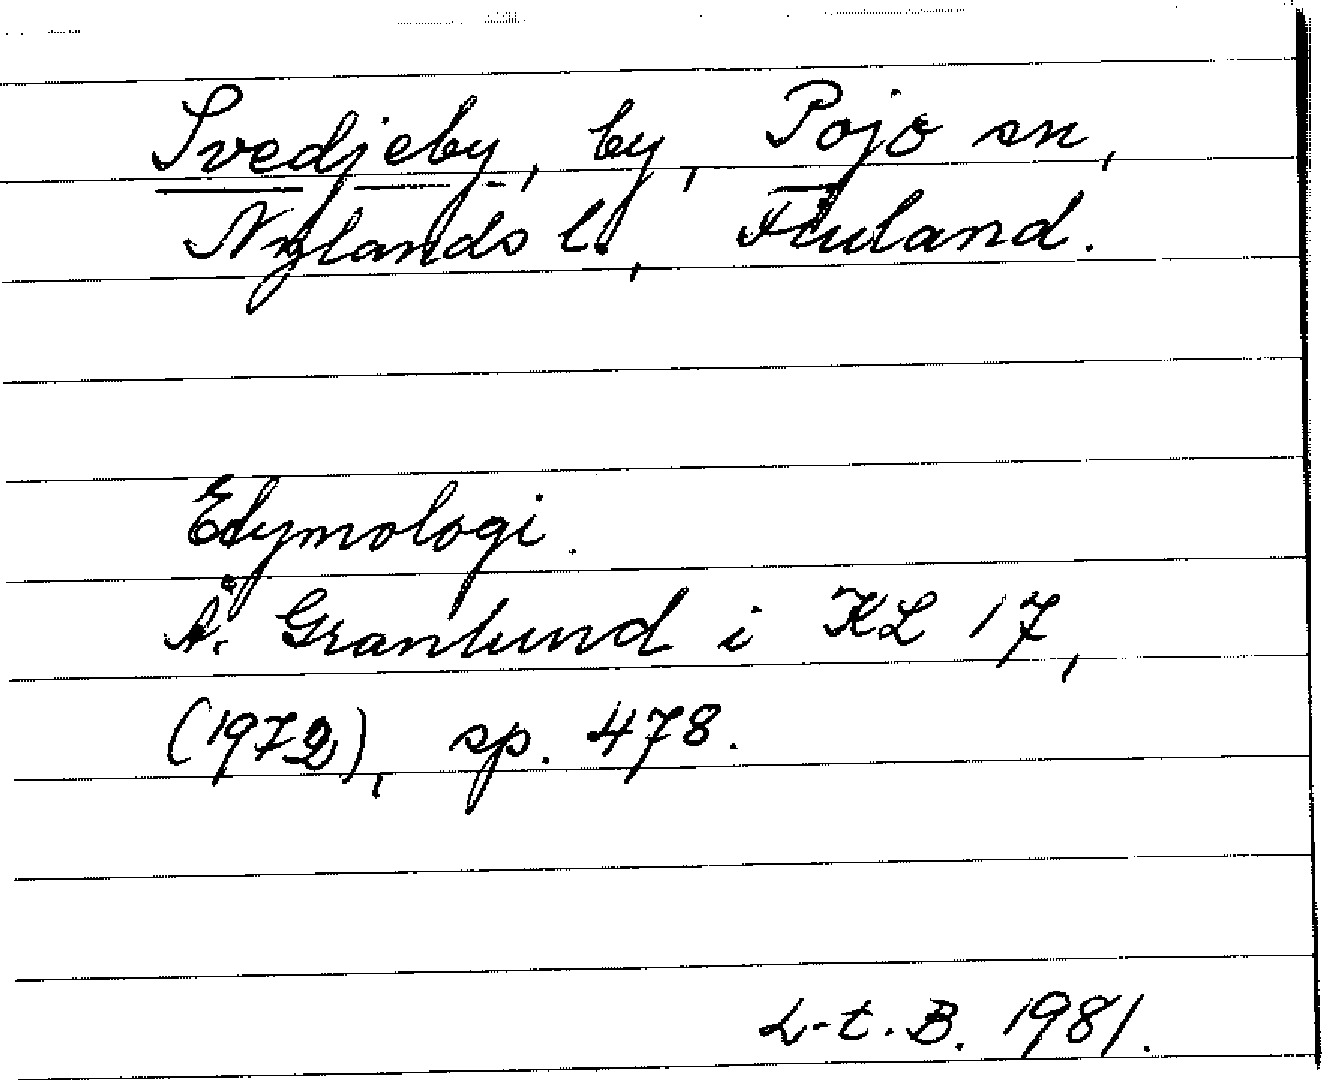 Svedjeby, by, Pojo sn,
Nylands l., Finland.
Etymologi.
Å. Granlund i KL 17,
(1972), sp. 478.
L-t. B. 1981.